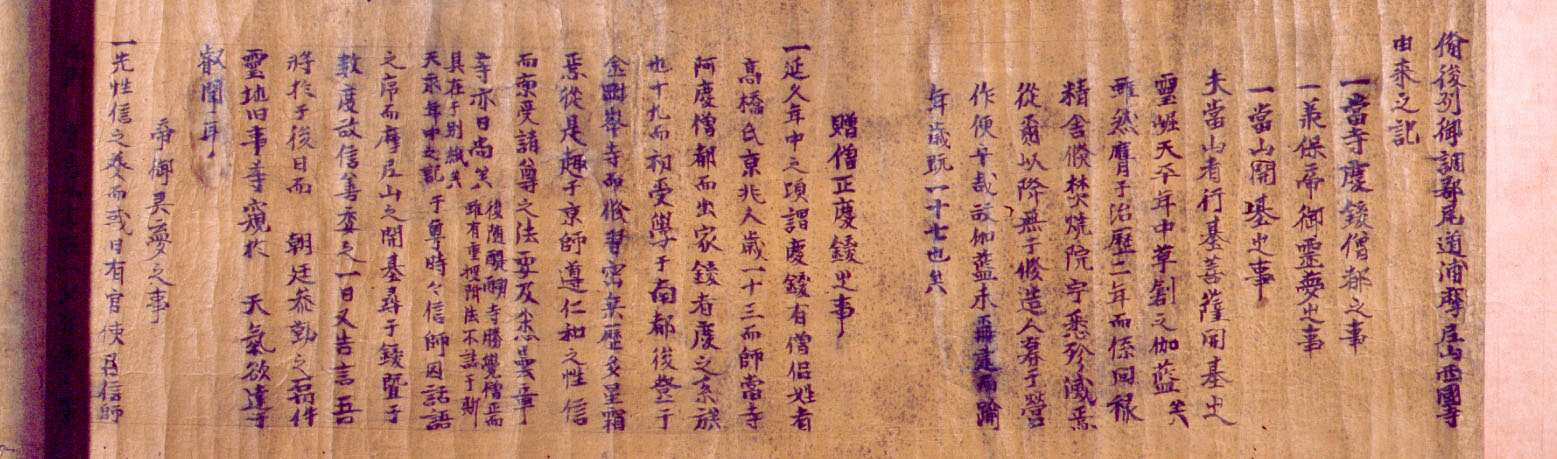 備後列御調郡尾道浦摩尼山西國寺
由来之記
一當寺慶鍐僧都之事
一兼保帝御霊夢之事
一當山開基之事
夫當山者行基菩薩開基也
霊崛天平年中草創之伽藍矣
雖然膺于治歴二年而係回禄
精舎倏焚焼院宇悉殄滅焉
從爾以降無于修造人暮于營
作便乎哉故伽藍未再建而踰
年歳既一十七也矣
贈僧正慶鍐之事
一延久年中之頃謂慶鍐有僧侶姓者
高橋氏京兆人歳一十三而師當寺
阿慶僧都而出家鍐者慶之系族
也十九而初受學于南都後登于
金剛峯寺而修習密乗歴炙星霜
焉從是趣于京師遵仁和之性信
而稟受請尊之法要及氽悉曇章
等亦曰尚矣
後随醍醐寺勝覺僧正而
雖有重授附法不誌于斯
具在于別紙矣
天永年中之記
于尊時々信師因話語
之序而摩尼山之開基尋于鍐暨于
数度故信善委之一日又告言吾
将於于後日而 朝廷恭勤之爲件
霊地旧事等窺於 天氣欲達于
叡聞耳
帝御霊夢之事
一先性信之奏而或日有官使召信師